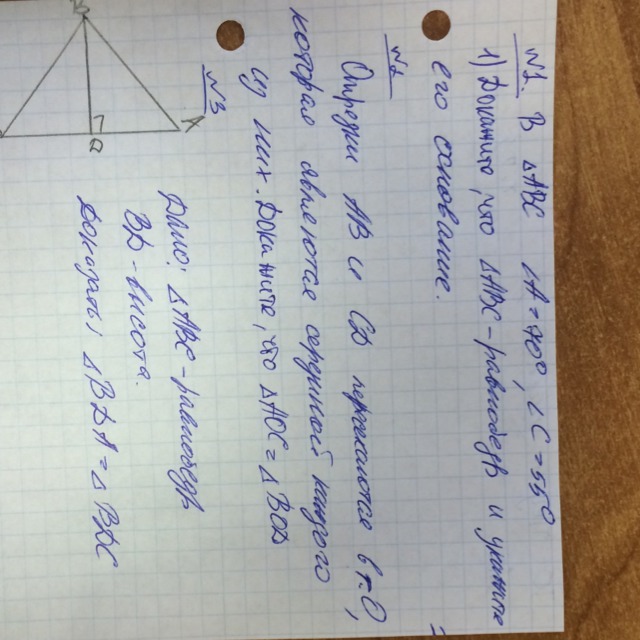 №1. В ΔABC ∠A = 70°, ∠C = 55°
1) Докажите, что ΔABC - равнобедр и укажите
его основание.
№2
Отрезки AB и CD пересекаются в т O,
которая является серединой каждого
из них. Докажите, что ΔAOC = ΔBOD
№3
Дано: ΔABC - равнобедр
BD - высота.
Доказать: ΔBDA = ΔBDC
B
A
D